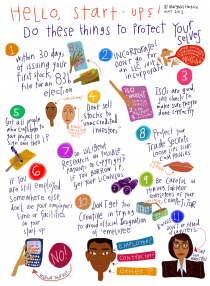 HELLO, START-UPS!
Do these things to protect Yourselves
1
Within 30 days
of issuing your
first stock,
file an 83b
election
2
INCORPORATE!
Don't go for
an LLC but
incorporate
3
ISOs are good,
just check to
make sure they're
done correctly
4
Don't sell
stocks to
unaccredited
investors
5
Get all people
who contribute to
your project to IP
sign over their
6
IF YOU
are still employed
somewhere else,
don't use your employer's
time or facilities
on your
start-up
7
Do Diligent
Research on trouble
patent or copyright
IF you borrow IP,
Get your licenses
8
Protect your
Trade Secrets
9
Be careful of
hiring former
employees of your
COMPETITOR
10
Don't get too
Creative in trying
to avoid official designation
of "employee"
11
Don't be afraid
of lawyers
NO!
EMPLOYEE?
CONTRACTOR?
OTHER?